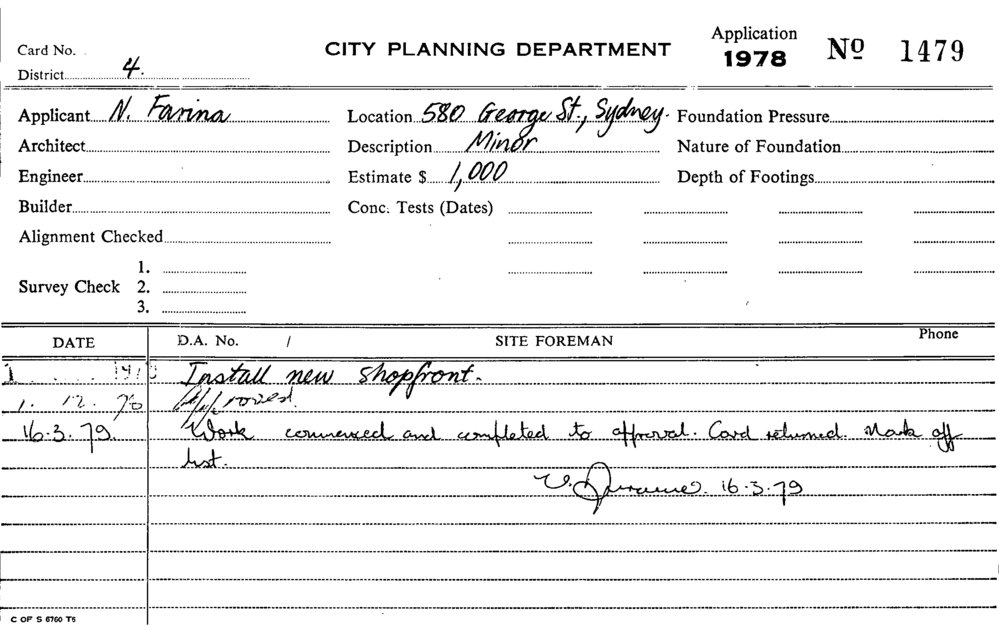 Card No.
CITY PLANNING DEPARTMENT
Application
1978
Nº 1479
District 4.
Applicant N. Farina
Location 580 George St., Sydney.
Foundation Pressure
Architect
Description Minor
Nature of Foundation
Engineer
Estimate $ 1,000
Depth of Footings
Builder
Conc. Tests (Dates)
Alignment Checked
1.
Survey Check 2.
3.
DATE
D.A. No. /
SITE FOREMAN
Phone
Install new shopfront.
1. 12. 78
16.3.79. Work commenced and completed to approval. Card returned. Mark off
list.
16.3.79
C OF S 6760 T5